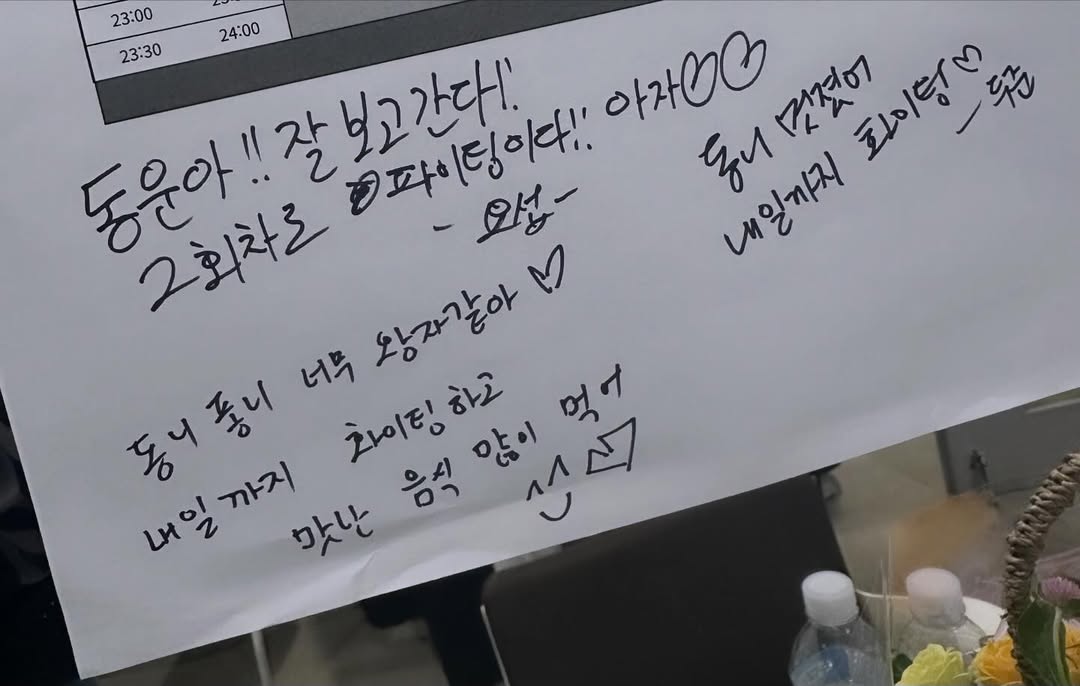 23:00
23:30 24:00
동운아!! 잘 보고간다!!
2회차로 파이팅이다!! 아자♡♡
- 요섭 -
동니 멋졌어
내일까지 화이팅♡
- 두준
동니 퐁니 너무 왕자같아♡
내일까지 화이팅하고
맛난 음식 많이 먹어